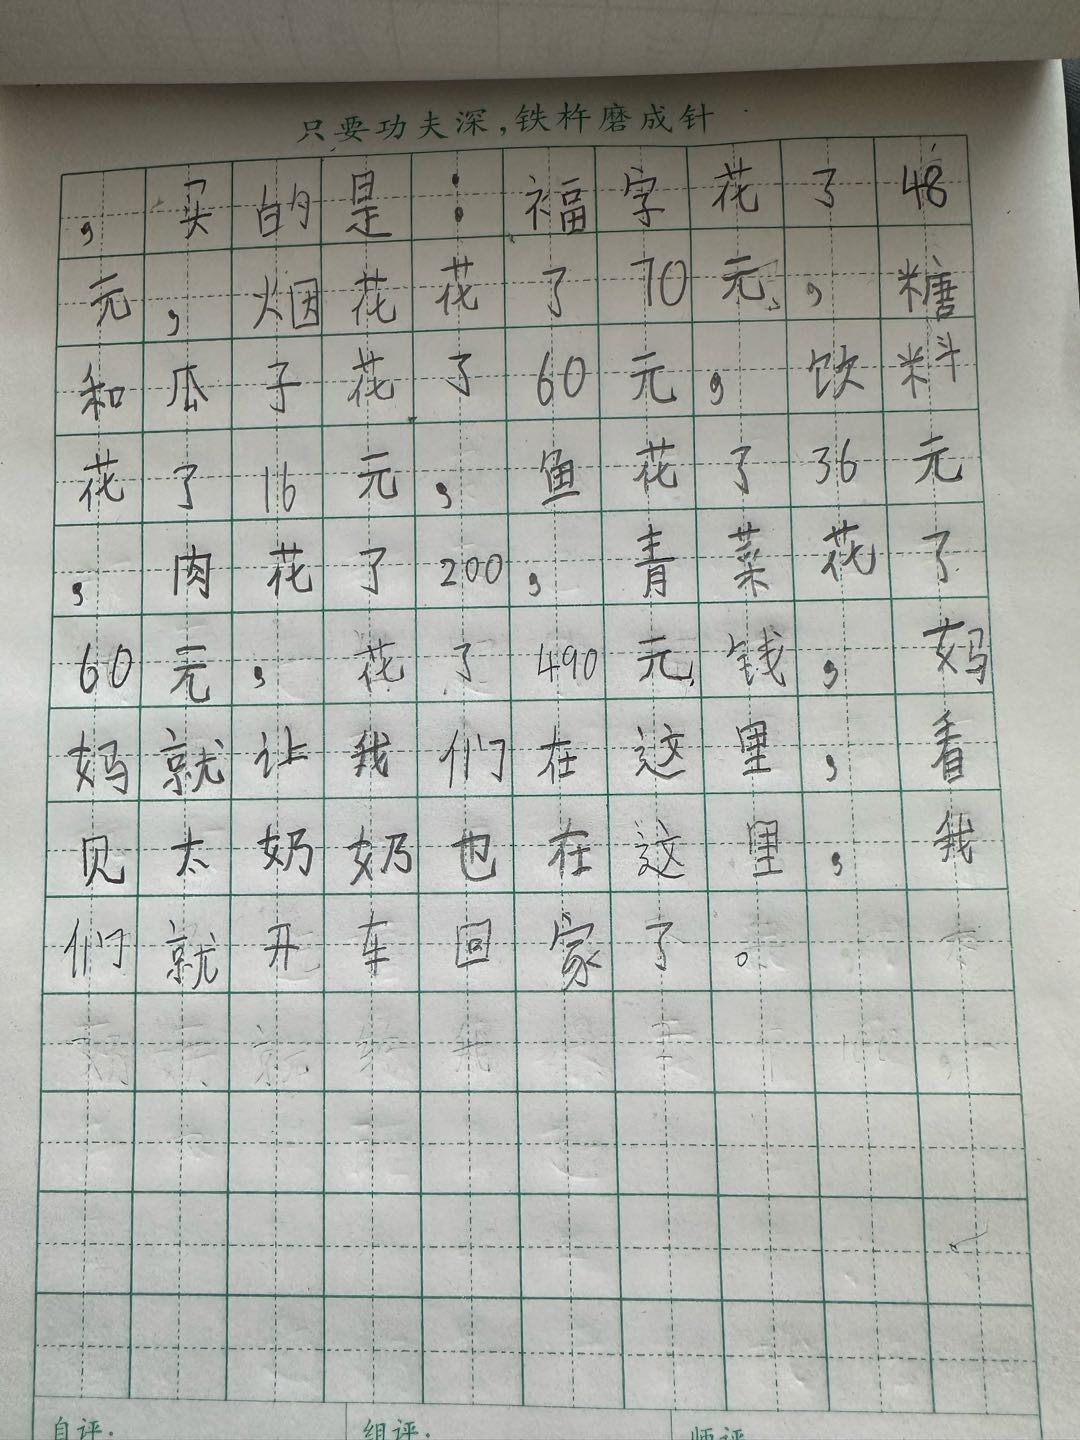 只要功夫深,铁杵磨成针
，买的是：福字花了48
元，烟花花了70元，糖
和瓜子花了60元，饮料
花了16元，鱼花了36元
，肉花了200，青菜花了
60元，花了490元钱，妈
妈就让我们在这里，看
见太奶奶也在这里，我
们就开车回家了。
自评: 组评: 师评